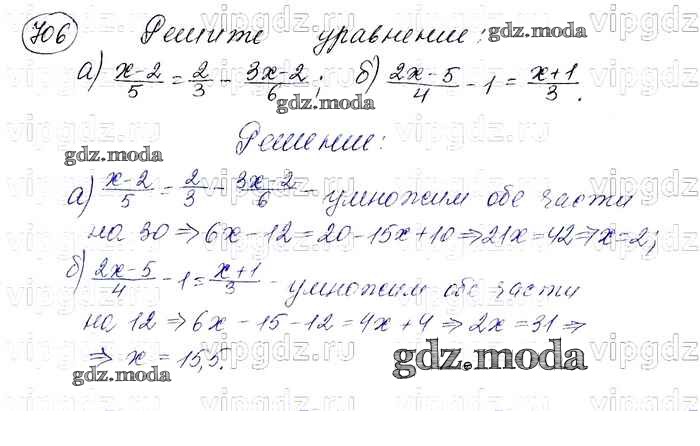 706 Решите уравнение:
а) x-2/5 = 2/3 - 3x-2/6; б) 2x-5/4 - 1 = x+1/3.
Решение:
а) x-2/5 = 2/3 - 3x-2/6 - умножим обе части
на 30 ⇒ 6x - 12 = 20 - 15x + 10 ⇒ 21x = 42 ⇒ x = 2;
б) 2x-5/4 - 1 = x+1/3 - умножим обе части
на 12 ⇒ 6x - 15 - 12 = 4x + 4 ⇒ 2x = 31 ⇒
⇒ x = 15,5.
gdz.moda
gdz.moda
gdz.moda
gdz.moda
gdz.moda
gdz.moda
vipgdz.ru